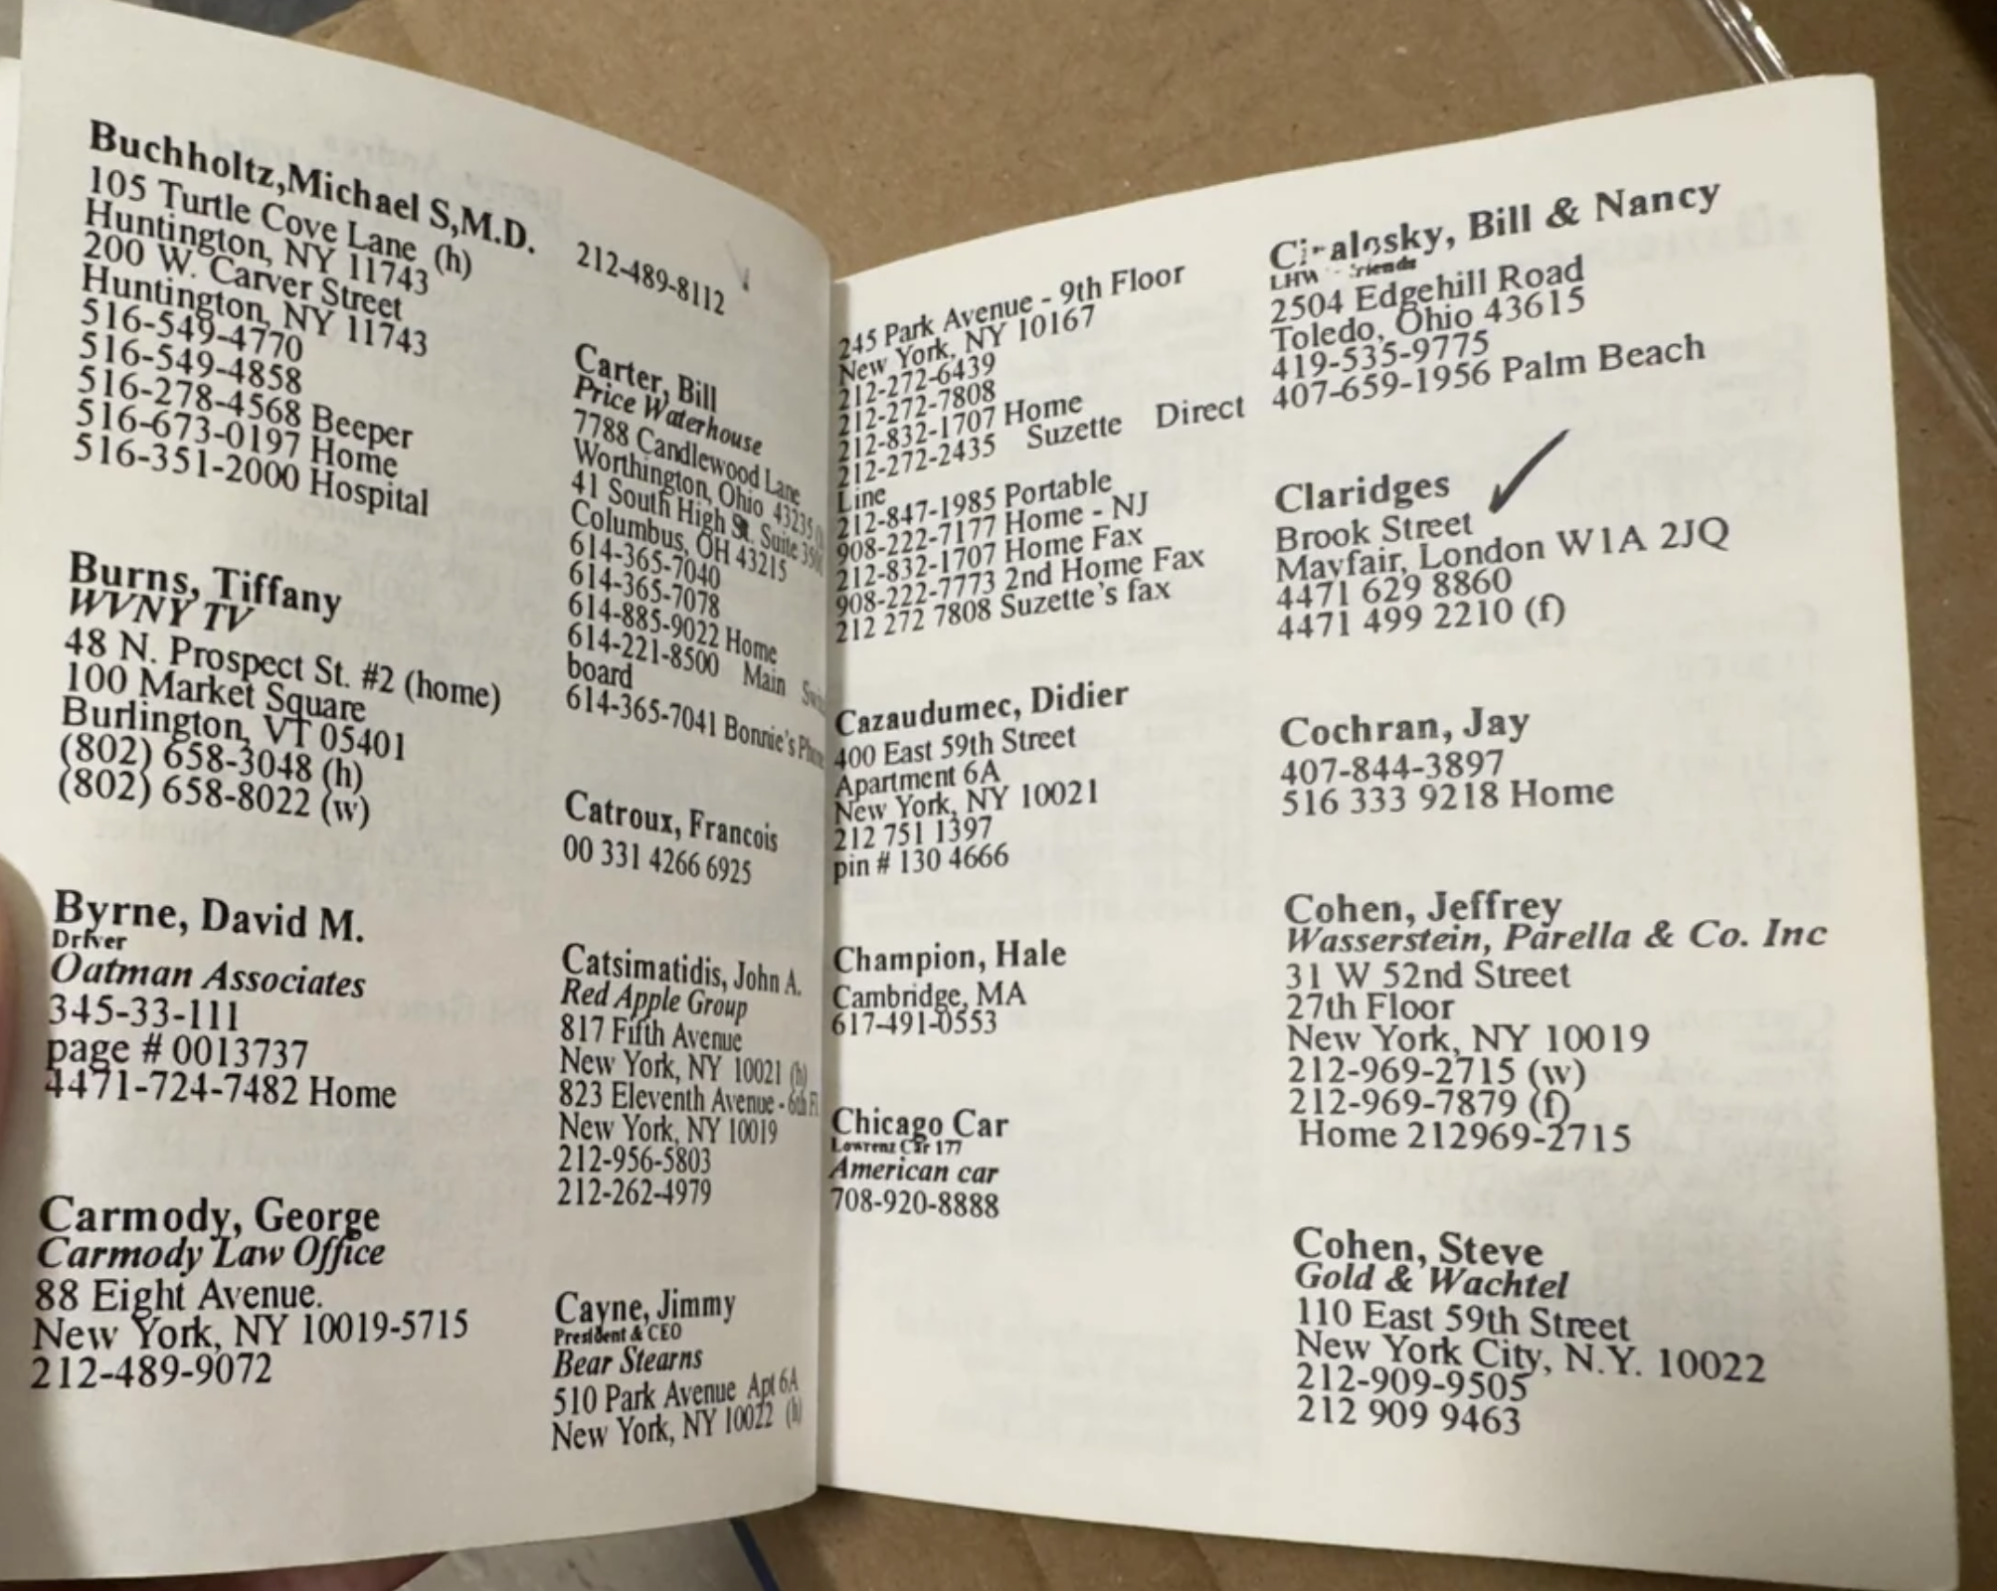 Buchholtz,Michael S,M.D.
105 Turtle Cove Lane (h)
Huntington, NY 11743
200 W. Carver Street
Huntington, NY 11743
516-549-4770
516-549-4858
516-278-4568 Beeper
516-673-0197 Home
516-351-2000 Hospital
Burns, Tiffany
WVNY TV
48 N. Prospect St. #2 (home)
100 Market Square
Burlington, VT 05401
(802) 658-3048 (h)
(802) 658-8022 (w)
Byrne, David M.
Driver
Oatman Associates
345-33-111
page # 0013737
4471-724-7482 Home
Carmody, George
Carmody Law Office
88 Eight Avenue.
New York, NY 10019-5715
212-489-9072
212-489-8112
Carter, Bill
Price Waterhouse
7788 Candlewood Lane
Worthington, Ohio 43235
41 South High St. Suite
Columbus, OH 43215
614-365-7040
614-365-7078
614-885-9022 Home
614-221-8500 Main
board
614-365-7041 Bonnie's
Catroux, Francois
00 331 4266 6925
Catsimatidis, John A.
Red Apple Group
817 Fifth Avenue
New York, NY 10021 (h)
823 Eleventh Avenue - 6th
New York, NY 10019
212-956-5803
212-262-4979
Cayne, Jimmy
President & CEO
Bear Stearns
510 Park Avenue Apt 6A
New York, NY 10022 (h)
245 Park Avenue - 9th Floor
New York, NY 10167
212-272-6439
212-272-7808
212-832-1707 Home
212-272-2435 Suzette Direct
Line
212-847-1985 Portable
908-222-7177 Home - NJ
212-832-1707 Home Fax
908-222-7773 2nd Home Fax
212 272 7808 Suzette's fax
Cazaudumec, Didier
400 East 59th Street
Apartment 6A
New York, NY 10021
212 751 1397
pin # 130 4666
Champion, Hale
Cambridge, MA
617-491-0553
Chicago Car
Lowrenz Car 177
American car
708-920-8888
Bill & Nancy
2504 Edgehill Road
Toledo, Ohio 43615
419-535-9775
407-659-1956 Palm Beach
Claridges
Brook Street
Mayfair, London W1A 2JQ
4471 629 8860
4471 499 2210 (f)
Cochran, Jay
407-844-3897
516 333 9218 Home
Cohen, Jeffrey
Wasserstein, Parella & Co. Inc
31 W 52nd Street
27th Floor
New York, NY 10019
212-969-2715 (w)
212-969-7879 (f)
Home 212969-2715
Cohen, Steve
Gold & Wachtel
110 East 59th Street
New York City, N.Y. 10022
212-909-9505
212 909 9463